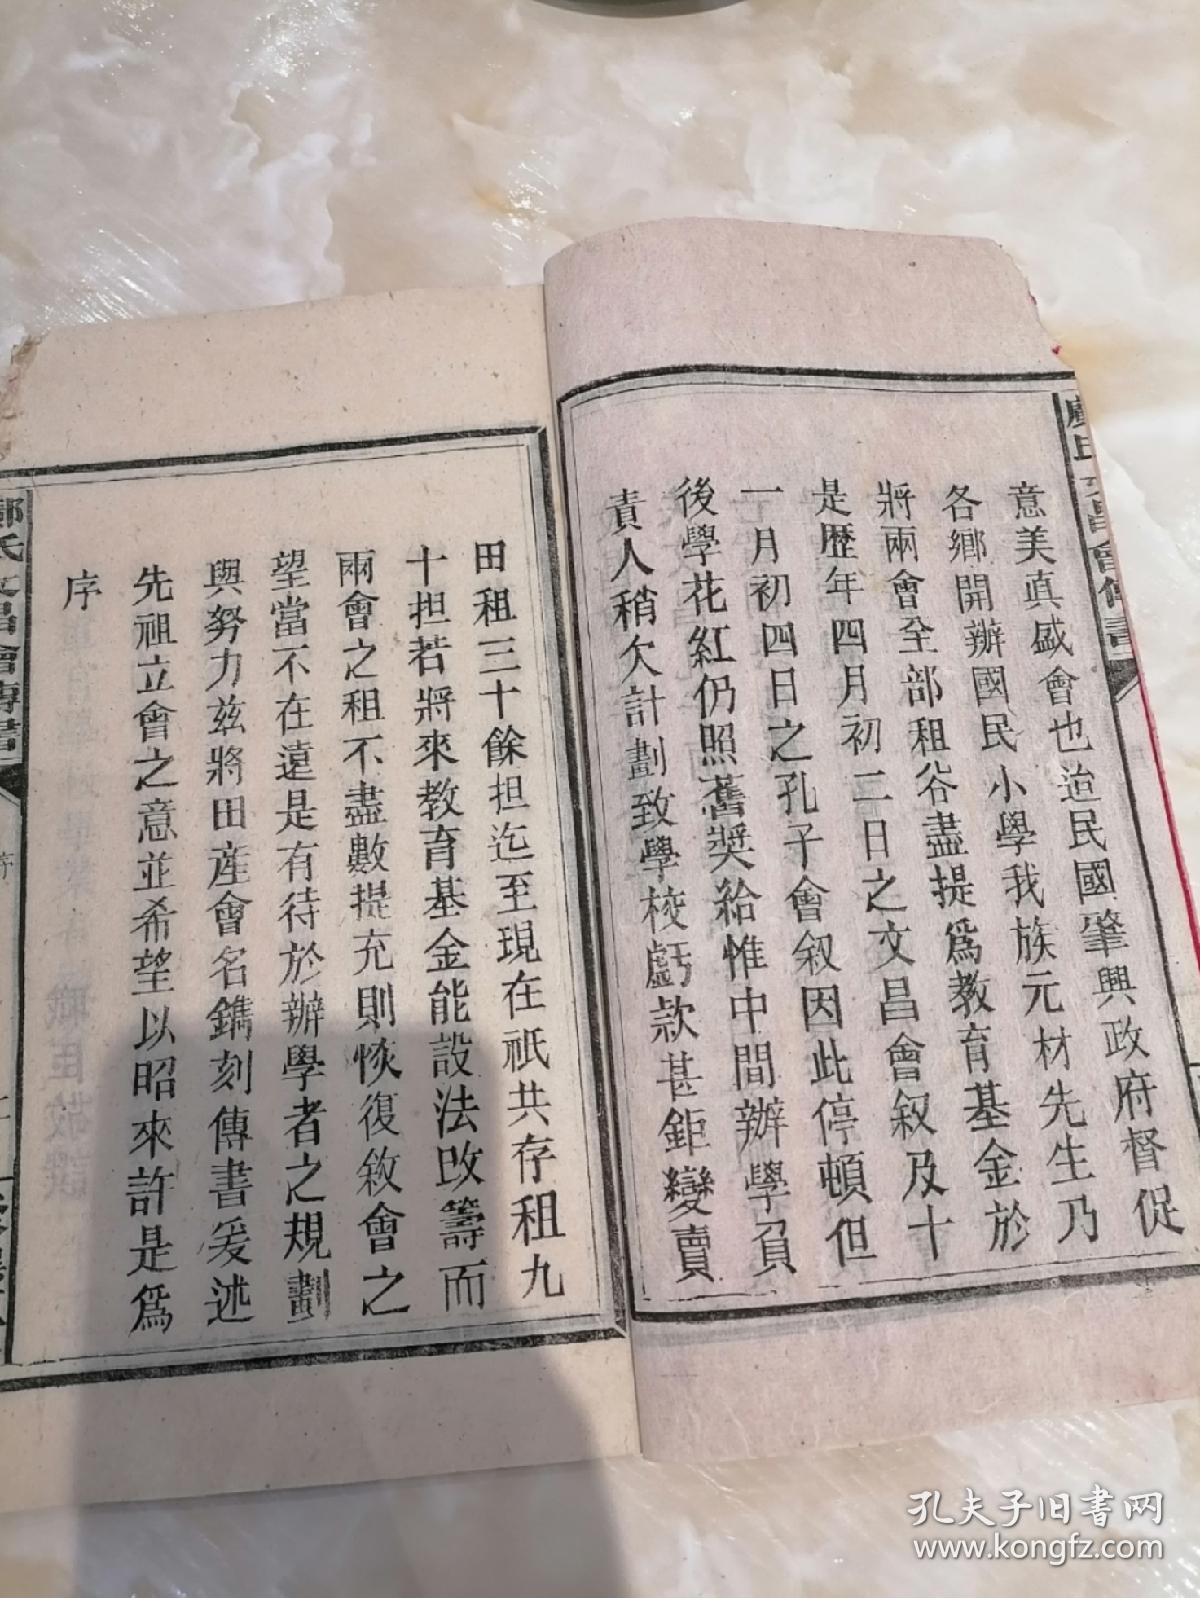 意美真盛會也迨民國肇興政府督促
各鄉開辦國民小學我族元材先生乃
將兩會全部租谷盡提爲教育基金於
是歷年四月初二日之文昌會叙及十
一月初四日之孔子會叙因此停頓但
後學花紅仍照舊獎給惟中間辦學負
責人稍欠計劃致學校虧款甚鉅變賣
田租三十餘担迄至現在祇共存租九
十担若將來教育基金能設法改籌而
兩會之租不盡數提充則恢復敘會之
望當不在遠是有待於辦學者之規劃
與努力茲將田產會名鐫刻傳書爰述
先祖立會之意並希望以昭來許是爲
序
氏文昌會傳書
孔夫子旧书网
www.kongfz.com